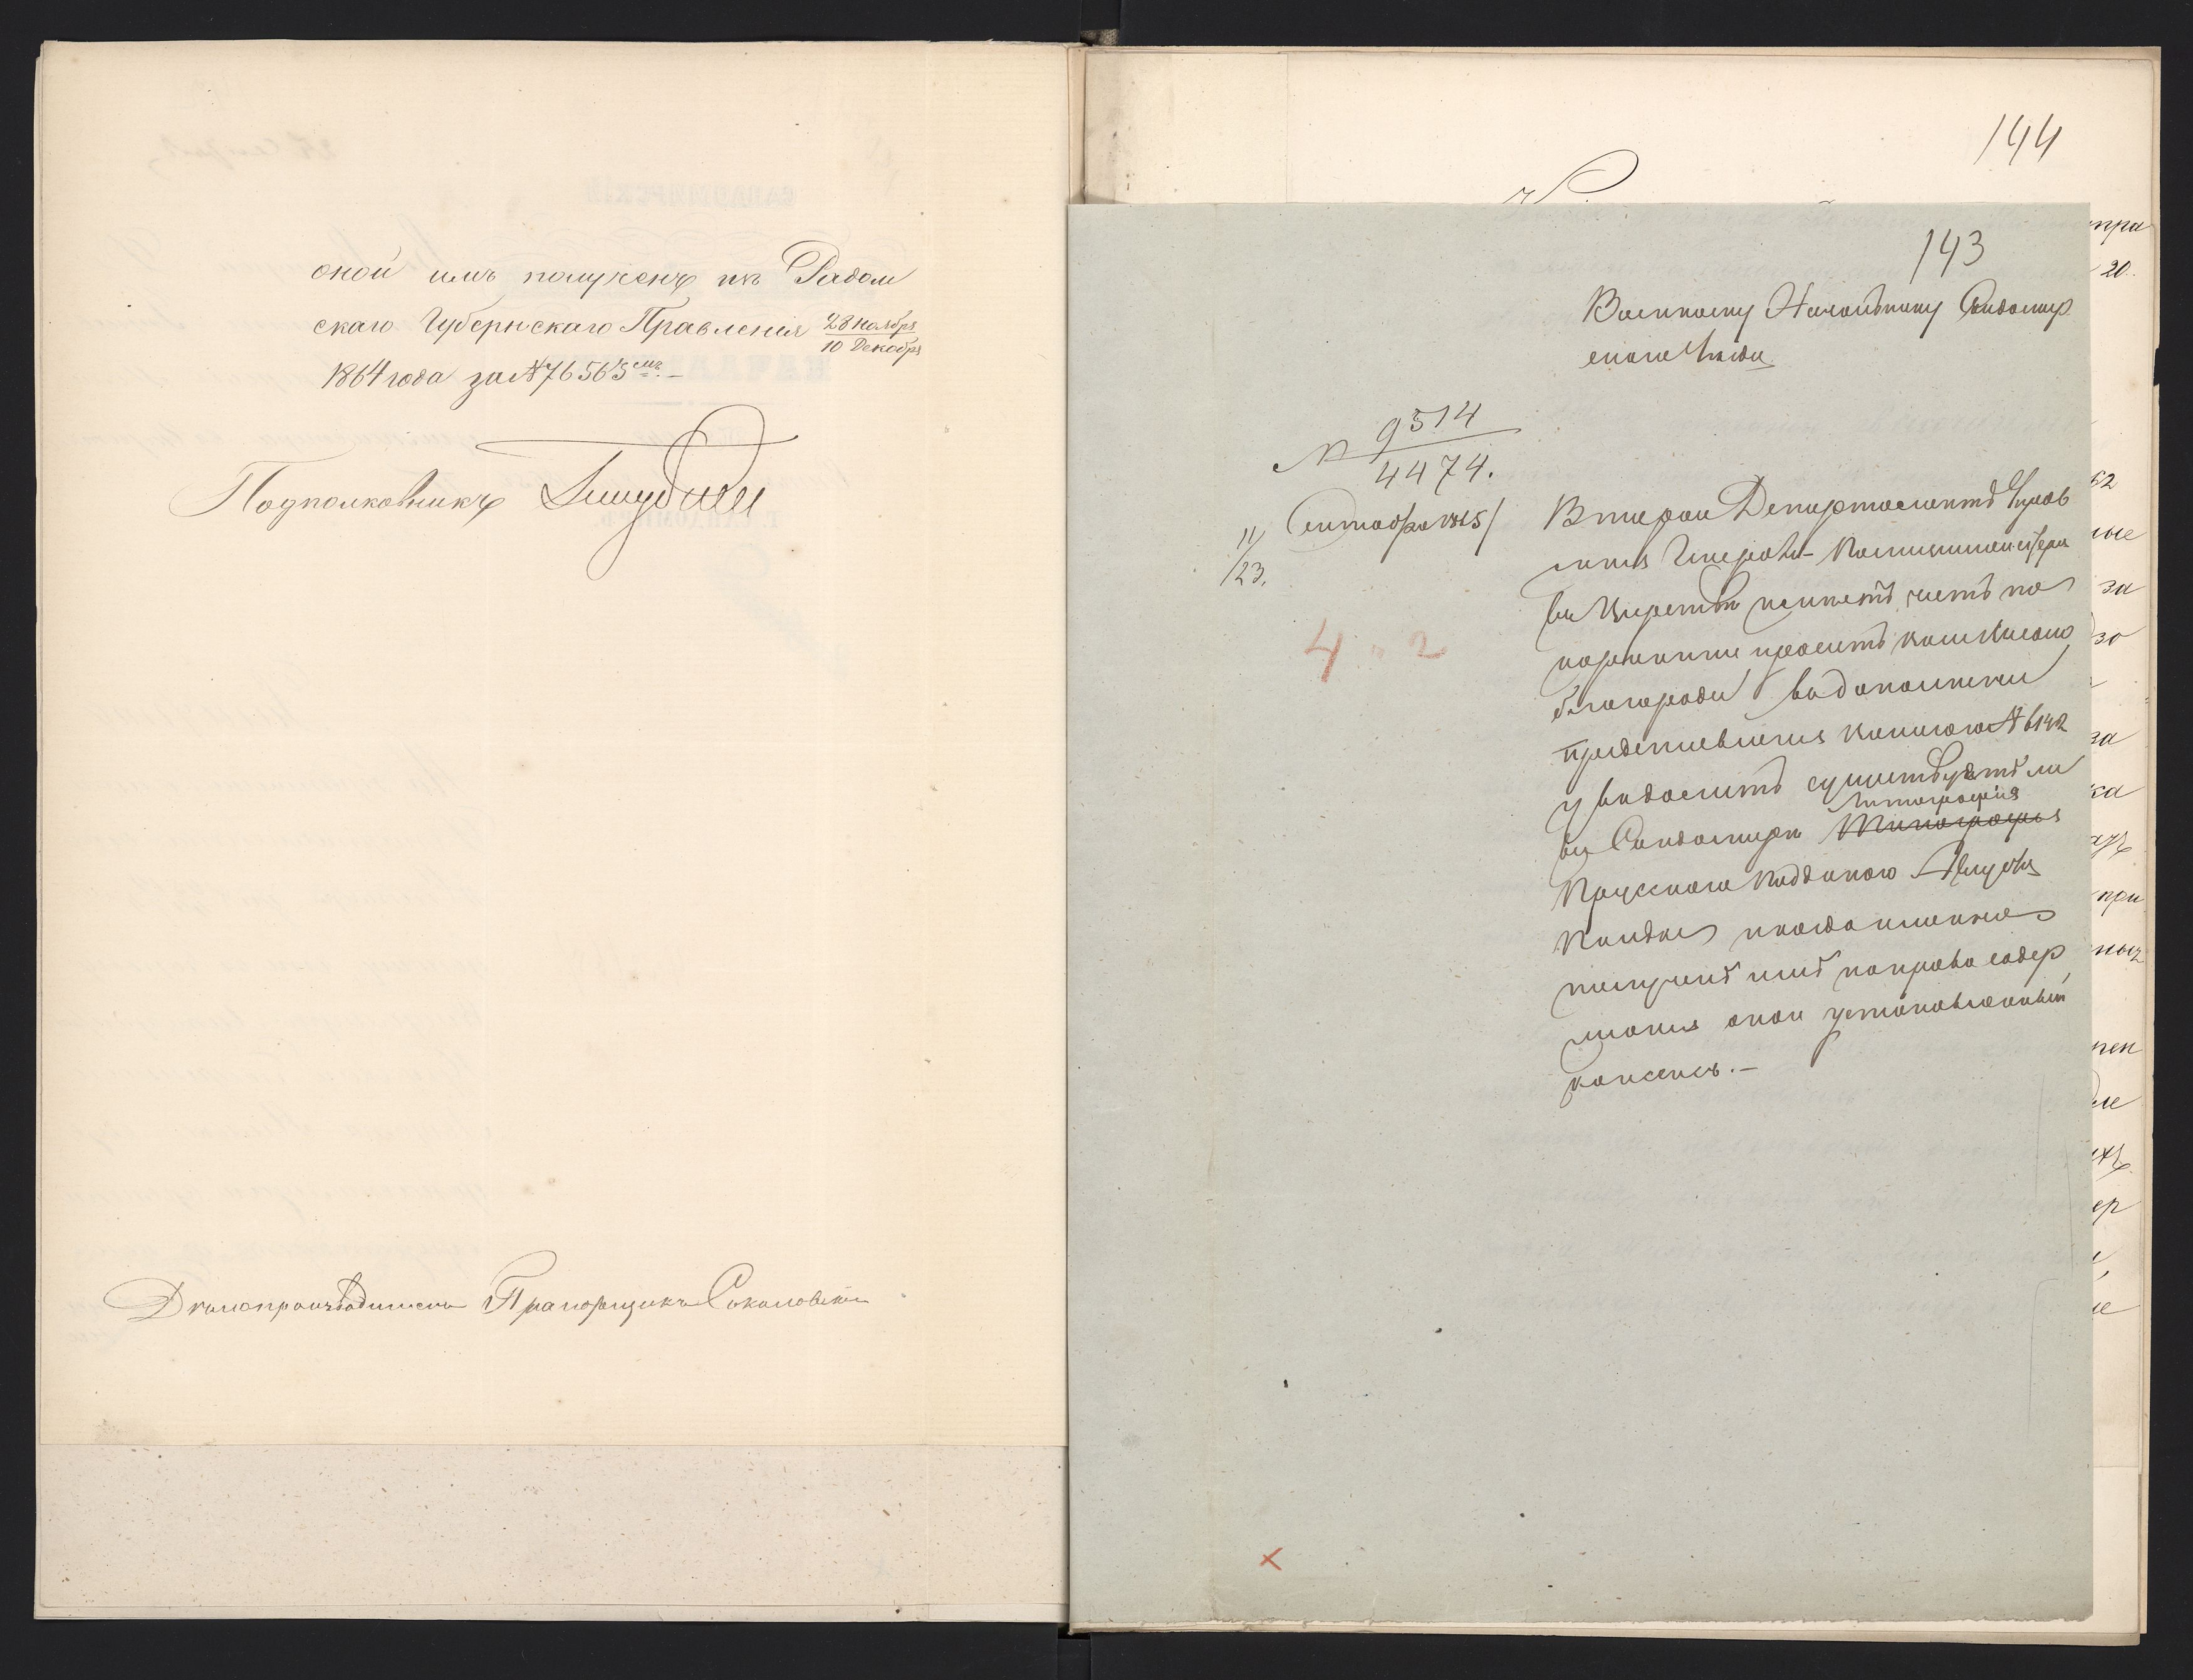 оной имъ полученъ изъ Радом
скаго Губернскаго Правленія 28 Ноября
10 Декабря
1864 года за № 76565 мъ.
Подполковникъ
Дѣлопроизводитель Прапорщикъ Соколовскій
144
143
Военному Начальнику Сандомир
скаго Уѣзда
№ 9514
4474.
11/23. Сентября 1865
4 2
Вторый Департаментъ Управ
ленія Генералъ-Полиціймейстера
въ Царствѣ имѣетъ честь по
корнѣйше просить Ваше Высоко
благородіе въ дополненіе
предст 
 № 6142
увѣдомить существуетъ ли
Литографія
въ Сандомирѣ Типографія
Прусскаго подданого Августа
 и когда именно
полученъ имъ на право содер
жанія оной установленный
консенсъ. –
пра
20.
62
ные
за
за
ка
при
ныхъ